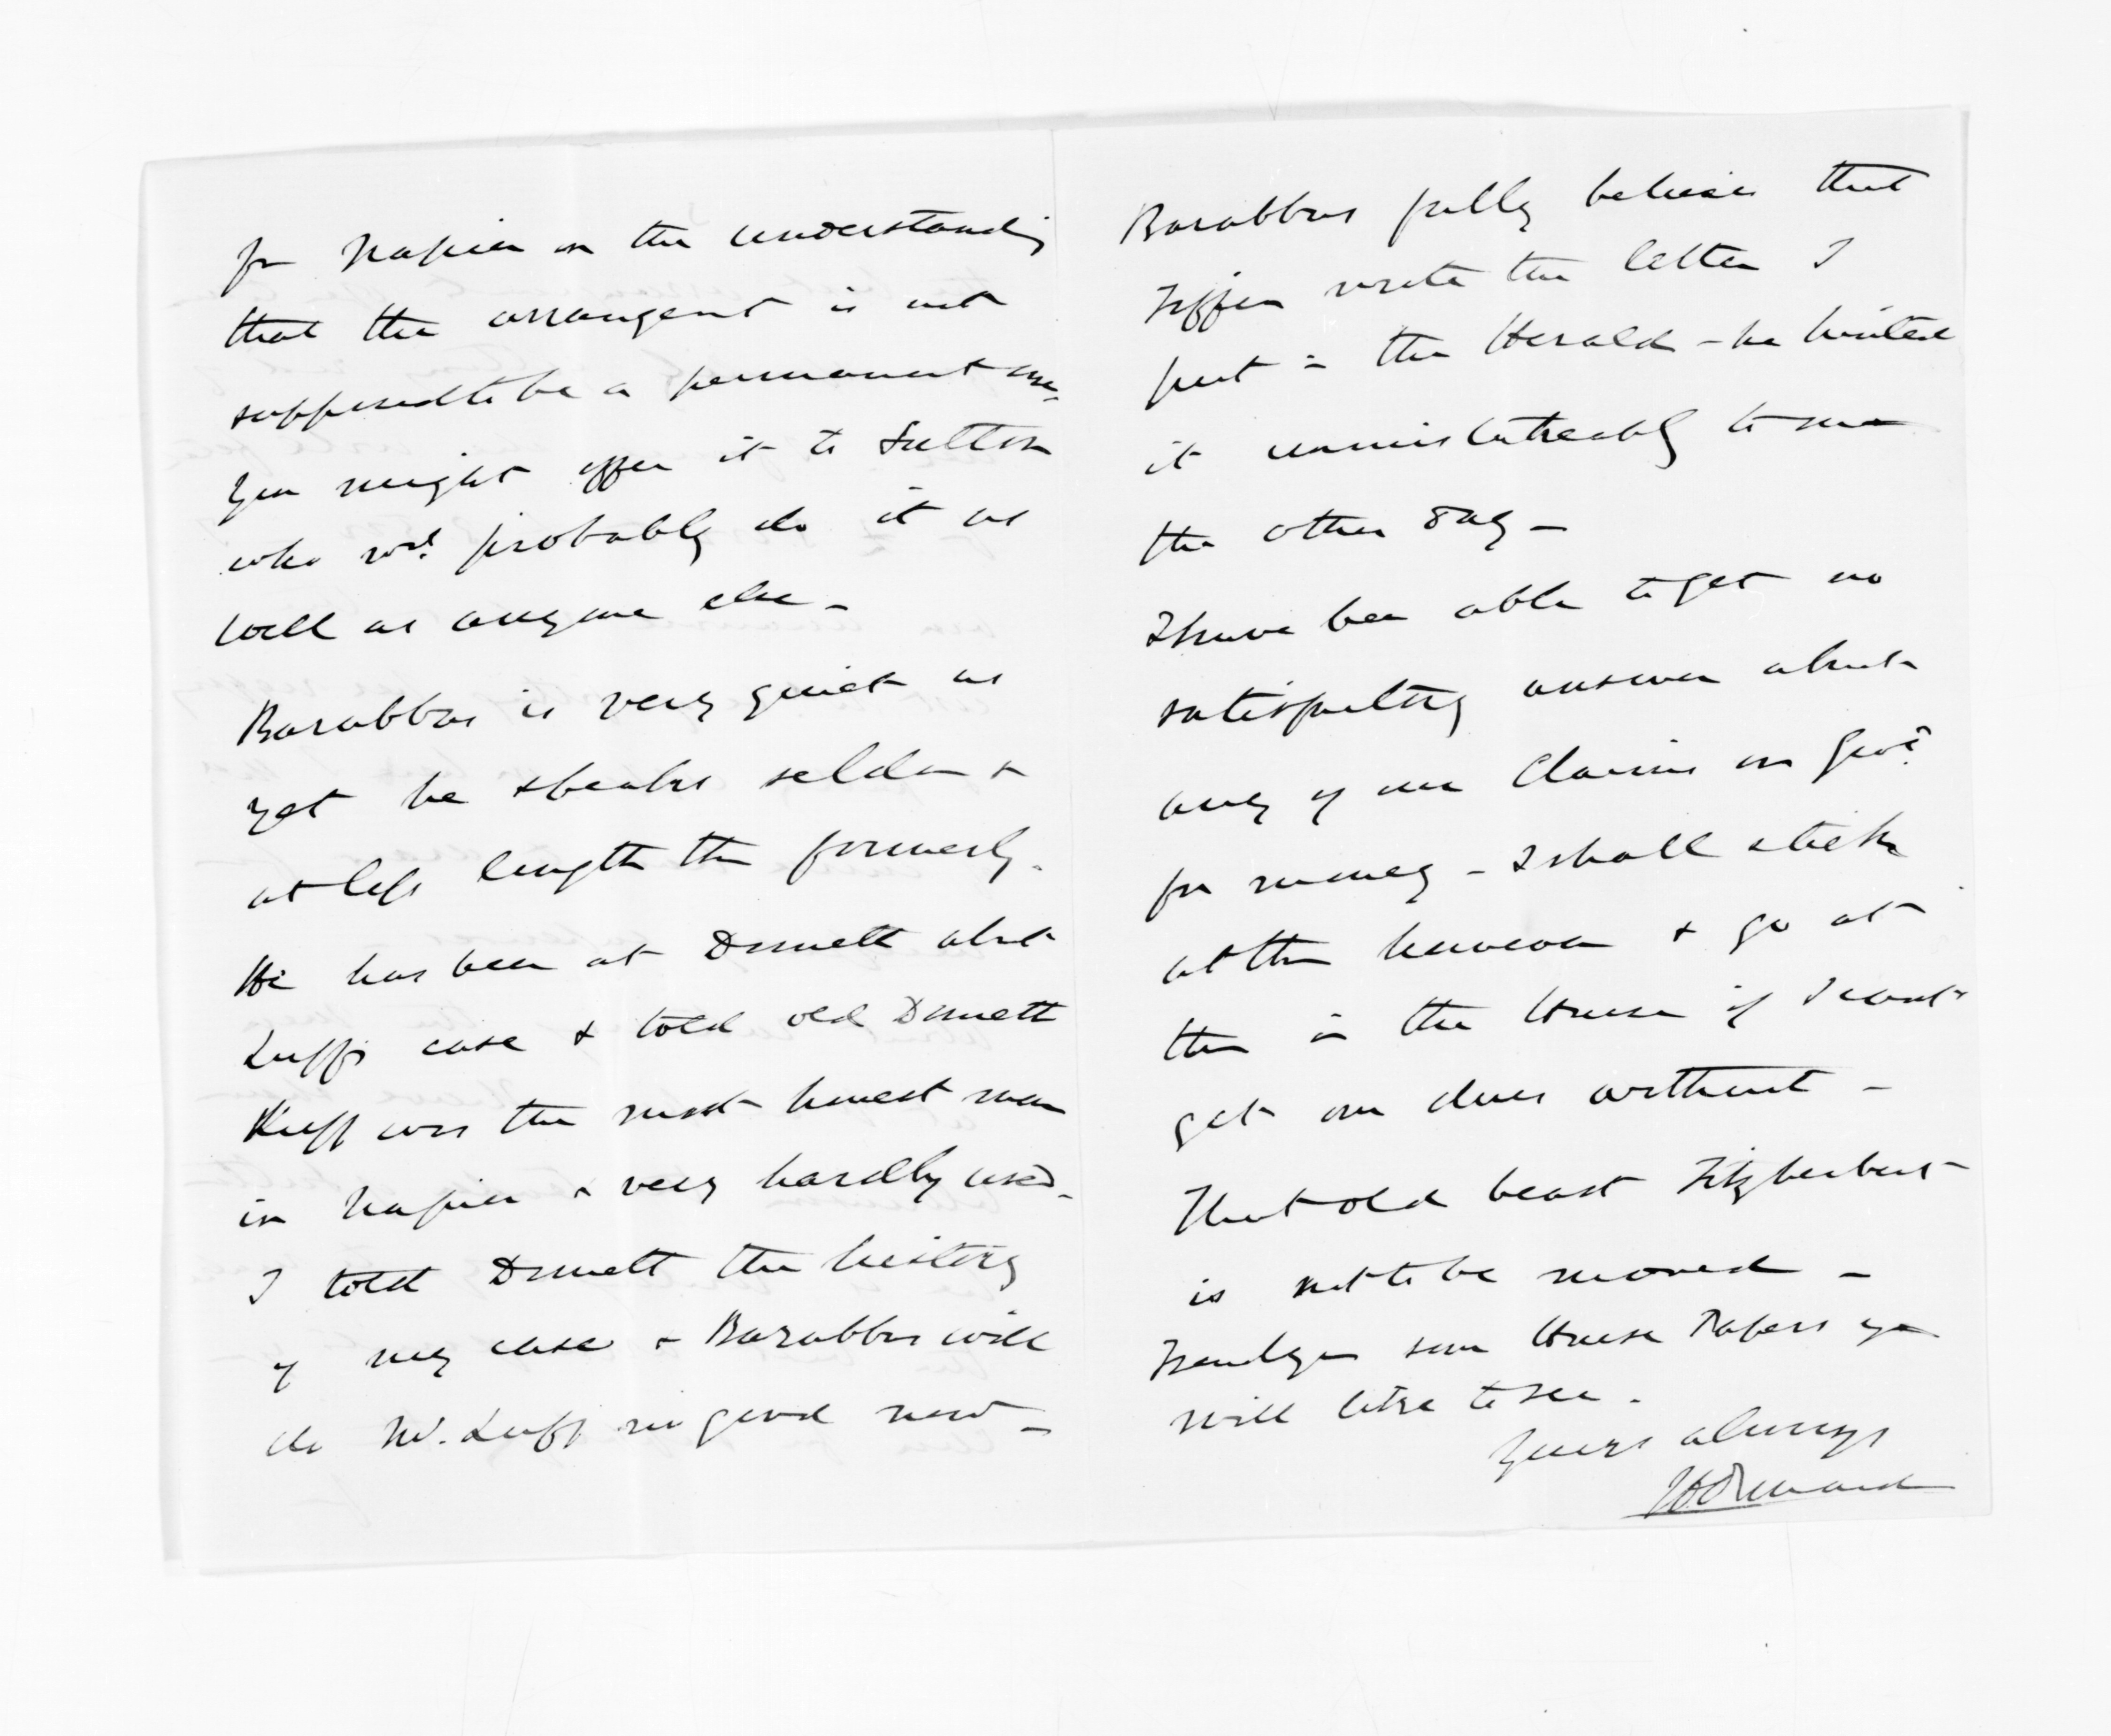 for Napier on the understanding
that the arrangent is not
supposed to be a permanent one.
You might offer it to Sutton
who wd. probably do it as
well as anyone else -
Barabbas is very quiet as
yet he speaks seldom &
at less length than formerly.
He has been at Domett about
Luff's case & told old Domett
Luff was the most honest man
in Napier & very hardly used.
I told Domett the history
of my case & Barabbas will
do W. Luff no good now -
Barabbas fully believes that
Tiffen wrote the letter I
put in the Herald - he hinted
it unmistakeably to me
the other day -
I have been able to get no
satisfactory answer about
any of our Claims on Govt.
for money - I shall stick
at them however & go at
them in the House if I cant
get our dues without -
That old beast Fitzherbert
is not to be moved -
I send you some House Papers you
will like to see.
Yours always
JD Ormond